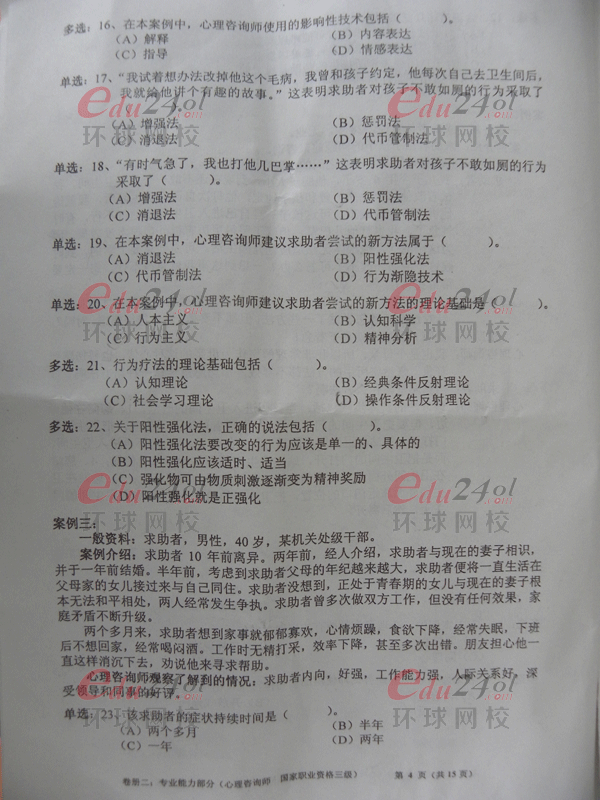 多选：16、在本案例中，心理咨询师使用的影响性技术包括（　　）。
（A）解释　　（B）内容表达
（C）指导　　（D）情感表达
单选：17、“我试着想办法改掉他这个毛病，我曾和孩子约定，他每次自己去卫生间后，
我就给他讲个有趣的故事。”这表明求助者对孩子不敢如厕的行为采取了
（　　）。
（A）增强法　　（B）惩罚法
（C）消退法　　（D）代币管制法
单选：18、“有时气急了，我也打他几巴掌……”这表明求助者对孩子不敢如厕的行为
采取了（　　）。
（A）增强法　　（B）惩罚法
（C）消退法　　（D）代币管制法
单选：19、在本案例中，心理咨询师建议求助者尝试的新方法属于（　　）。
（A）消退法　　（B）阳性强化法
（C）代币管制法　　（D）行为渐隐技术
单选：20、在本案例中，心理咨询师建议求助者尝试的新方法的理论基础是（　　）。
（A）人本主义　　（B）认知科学
（C）行为主义　　（D）精神分析
多选：21、行为疗法的理论基础包括（　　）。
（A）认知理论　　（B）经典条件反射理论
（C）社会学习理论　　（D）操作条件反射理论
多选：22、关于阳性强化法，正确的说法包括（　　）。
（A）阳性强化法要改变的行为应该是单一的、具体的
（B）阳性强化应该适时、适当
（C）强化物可由物质刺激逐渐变为精神奖励
（D）阳性强化就是正强化
案例三：
一般资料：求助者，男性，40 岁，某机关处级干部。
案例介绍：求助者 10 年前离异。两年前，经人介绍，求助者与现在的妻子相识，
并于一年前结婚。半年前，考虑到求助者父母的年纪越来越大，求助者便将一直生活在
父母家的女儿接过来与自己同住。求助者没想到，正处于青春期的女儿与现在的妻子根
本无法和平相处，两人经常发生争执。求助者曾多次做双方工作，但没有任何效果，家
庭矛盾不断升级。
两个多月来，求助者想到家事就郁郁寡欢，心情烦躁，食欲下降，经常失眠，下班
后不想回家，经常喝闷酒。工作时无精打采，效率下降，甚至多次出错。朋友担心他一
直这样消沉下去，劝说他来寻求帮助。
心理咨询师观察了解到的情况：求助者内向，好强，工作能力强，人际关系好，深
受领导和同事的好评。
单选：23、该求助者的症状持续时间是（　　）。
（A）两个多月　　（B）半年
（C）一年　　（D）两年
卷册二：专业能力部分（心理咨询师　国家职业资格三级）　　第 4 页（共 15 页）
edu24ol
环球网校
edu24ol
环球网校
edu24ol
环球网校
edu24ol
环球网校
edu24ol
环球网校
edu24ol
环球网校
edu24ol
环球网校
edu24ol
环球网校